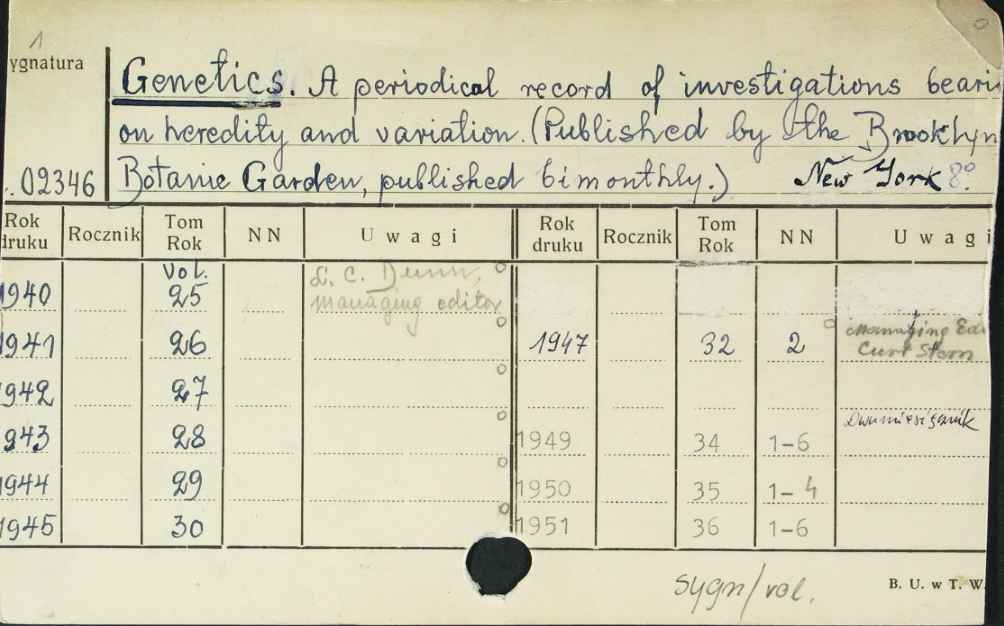 1
ygnatura
Genetics. A periodical record of investigations beari
on heredity and variation. (Published by the Brooklyn
. 02346 Botanic Garden, published bimonthly.) New York 8º
Rok druku Rocznik Tom Rok NN Uwagi Rok druku Rocznik Tom Rok NN Uwagi
1940 Vol. 25 L. C. Dunn, managing editor
1941 26 1947 32 2 Managing Edi Curt Stern
1942 27
943 28 Dwumiesięcznik 1949 34 1-6
1944 29 1950 35 1-4
1945 30 1951 36 1-6
sygn/vol.
B. U. w T. W.